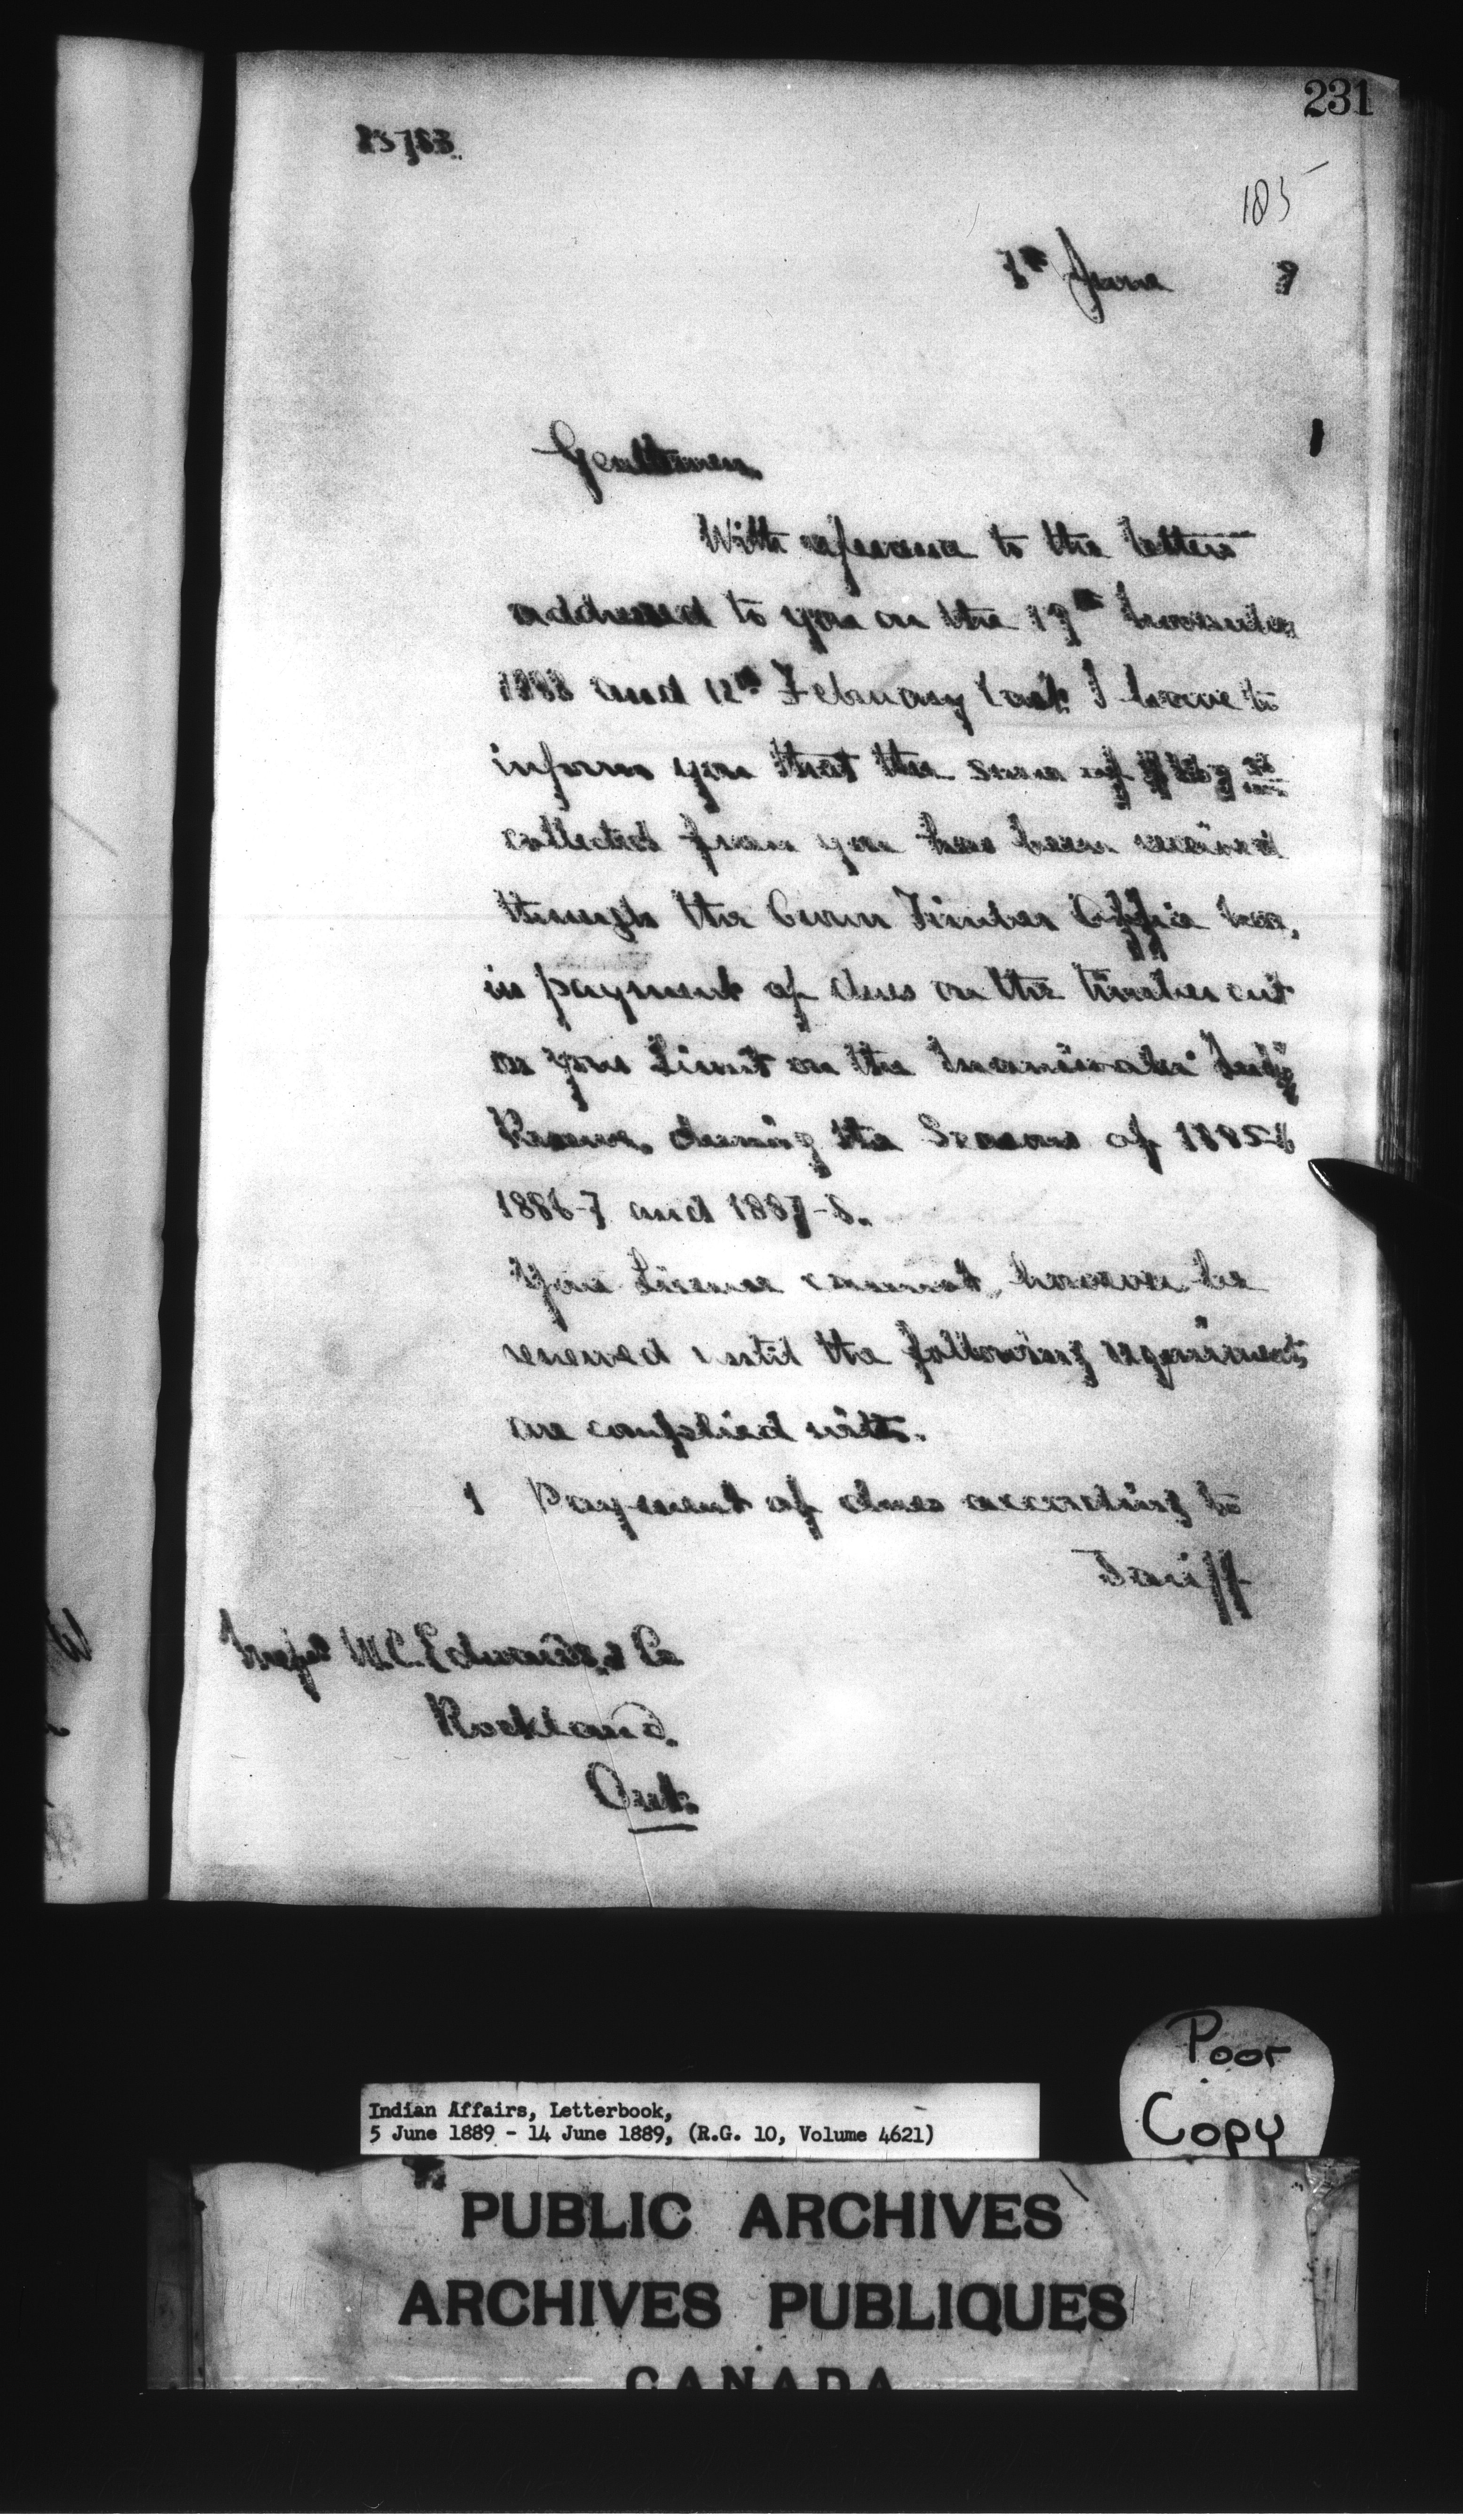 231
185
7th June 9
Gentlemen,
With reference to the letters
addressed to you on the 19th November
1888 and 12th February last I have to
inform you that the sum of
collected from you has been received
through the Crown Timber Office here,
in payment of dues on the timber cut
on your Limit on the Maniwaki Indn
Reserve, during the Seasons of 1885-6
1886-7 and 1887-8.
Your License cannot, however be
renewed until the following requirements
are complied with.
1 Payment of dues according to
Tariff
Messrs W.C. Edwards & Co
Rockland.
Ont.
Poor
Copy
Indian Affairs, Letterbook,
5 June 1889 - 14 June 1889, (R.G. 10, Volume 4621)
PUBLIC ARCHIVES
ARCHIVES PUBLIQUES
CANADA